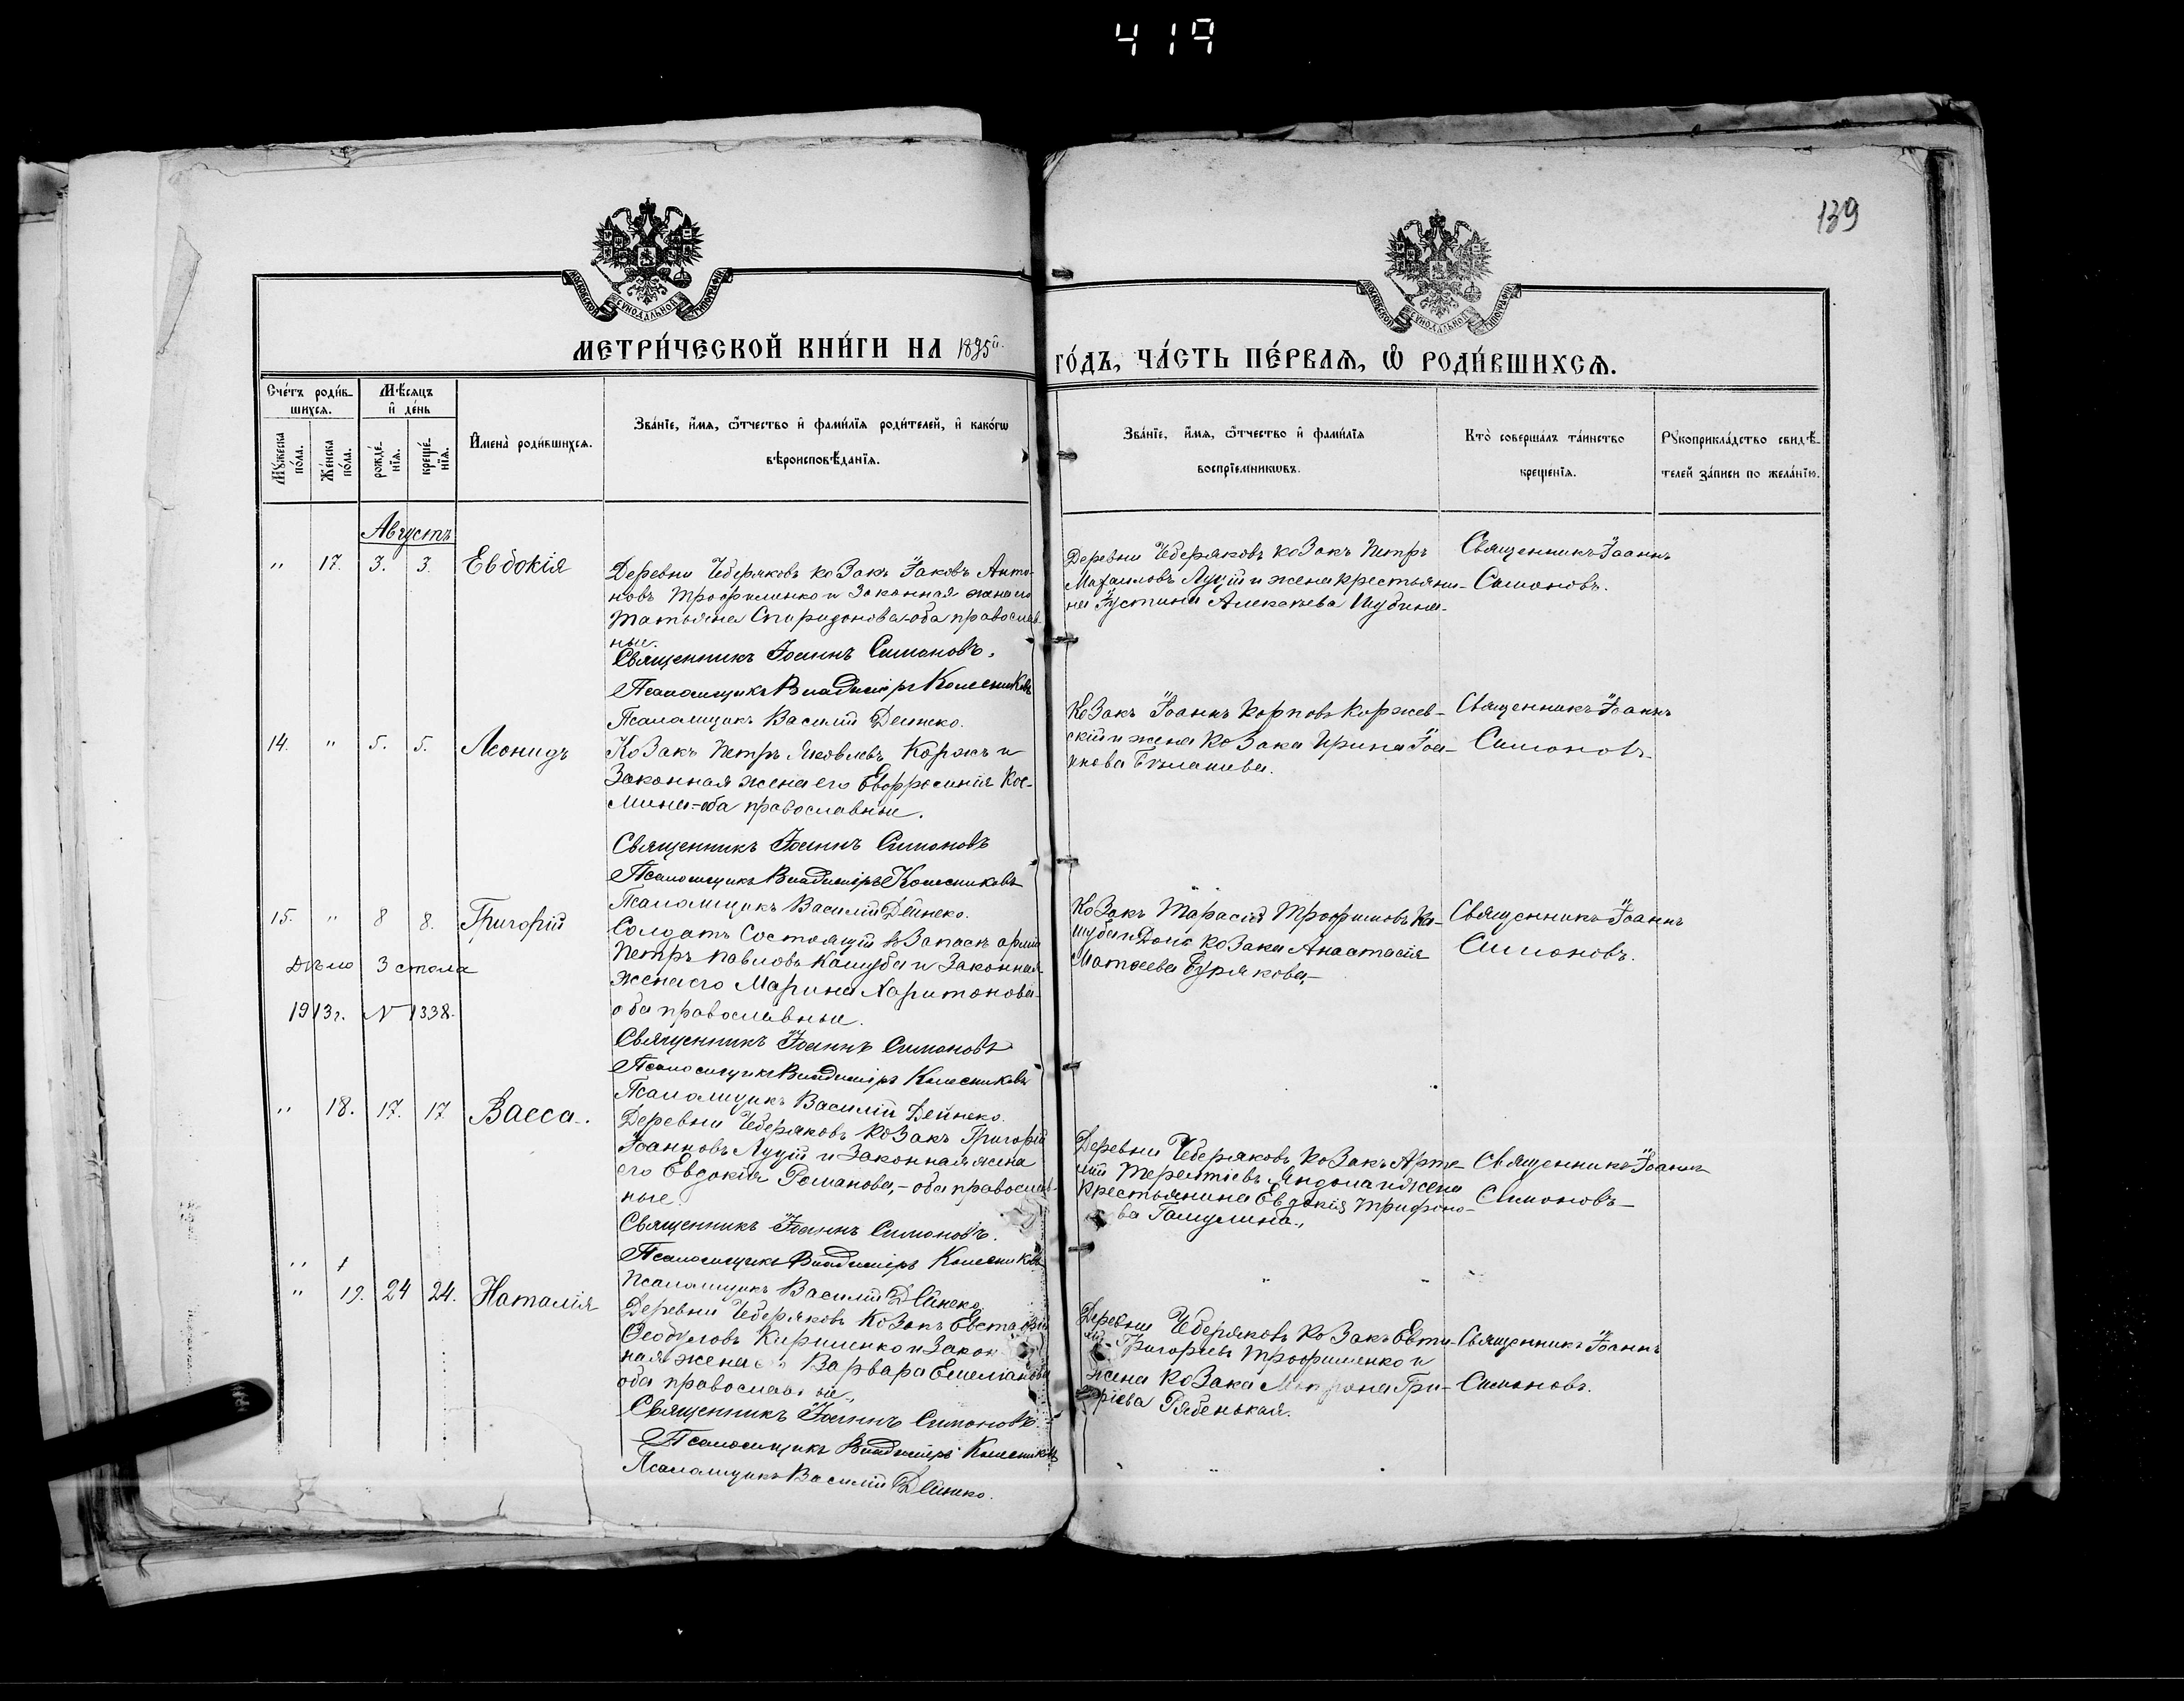 419
139
МОСКОВСКОЙ СѴНОДАЛЬНОЙ ТИПОГРАФІИ
МОСКОВСКОЙ СѴНОДАЛЬНОЙ ТИПОГРАФІИ
МЕТРИ́ЧЕСКОЙ КНИ́ГИ НА 1895й.
ГО́ДЪ, ЧА́СТЬ ПЕ́РВАѦ, Ѡ҆ РОДИ́ВШИХСѦ.
Сче́тъ роди́в-
шихсѧ.
Мѣ́сѧцъ
и҆ де́нь
Мꙋ́жеска
по́ла.
Же́нска
по́ла.
рожде́-
нїѧ.
креще́-
нїѧ.
И҆мена̀ роди́вшихсѧ.
Зва́нїе, и҆́мѧ, ѻ҆́тчество и҆ фами́лїѧ роди́телей, и҆ како́гѡ
вѣроисповѣ́данїѧ.
Зва́нїе, и҆́мѧ, ѻ҆́тчество и҆ фами́лїѧ
воспрїе́мникѡвъ.
Кто̀ соверша́лъ та́инство
креще́нїѧ.
Рꙋкоприкла́дство свидѣ́-
телей за́писи по жела́нїю.
Августъ
" 17. 3. 3. Евдокія
Деревни Чеберяковъ козакъ Іаковъ Анто-
новъ Трофименко и законная жена его
Татьяна Спиридонова-оба православ-
ные.
Священникъ Іоаннъ Симоновъ.
Псаломщикъ Владиміръ Колесниковъ
Псаломщикъ Василій Дейнеко.
Деревни Чеберяковъ козакъ Петръ
Михаиловъ Луцій и жена крестьяни-
на Іустина Алексѣева Шубина.
Священникъ Іоаннъ
Симоновъ.
14. " 5. 5. Леонидъ
Козакъ Петръ Яковлевъ Коржъ и
законная жена его Евфросинія Кос-
мина-оба православные.
Священникъ Іоаннъ Симоновъ
Псаломщикъ Владиміръ Колесниковъ
Псаломщикъ Василій Дейнеко.
Козакъ Іоаннъ Карповъ Коржев-
скій и жена козака Ирина Іоа-
ннова
Священникъ Іоаннъ
Симоновъ.
15. " 8 8. Григорій
Дѣло 3 стола
1913г. N 1338.
Солдатъ состоящій въ запасѣ арміи
Петръ Павловъ Кашуба и законная
жена его Марина Харитонова-
оба православные.
Священникъ Іоаннъ Симоновъ
Псаломщикъ Владиміръ Колесниковъ
Псаломщикъ Василій Дейнеко.
Козакъ Тарасій Трофимовъ Ка-
шуба и дочь козака Анастасія
Матѳеева Бурякова,-
Священникъ Іоаннъ
Симоновъ.
" 18. 17. 17 Васса.
Деревни Чеберяковъ козакъ Григорій
Іоанновъ Луцій и законная жена
его Евдокія Романова,-оба православ-
ные.
Священникъ Іоаннъ Симоновъ.
Псаломщикъ Владиміръ Колесниковъ
Псаломщикъ Василій Дейнеко.
Деревни Чеберяковъ козакъ Арте-
мій Терентіевъ и жена
крестьянина Евдокія Трифоно-
ва
Священникъ Іоаннъ
Симоновъ
" 19. 24 24. Наталія
Деревни Чеберяковъ козакъ Евстафій
Ѳеодуловъ Кириленко и закон
ная жена Варвара Емеліанова
оба православ ые.
Священникъ Іоаннъ Симоновъ
Псаломщикъ Владиміръ Колесниковъ
Псаломщикъ Василій Дейнеко.
Деревни Чеберяковъ козакъ Евти-
Григорьевъ Трофименко и
жена козака Матрона Гри-
рієва Рябенькая.
Священникъ Іоаннъ
Симоновъ.